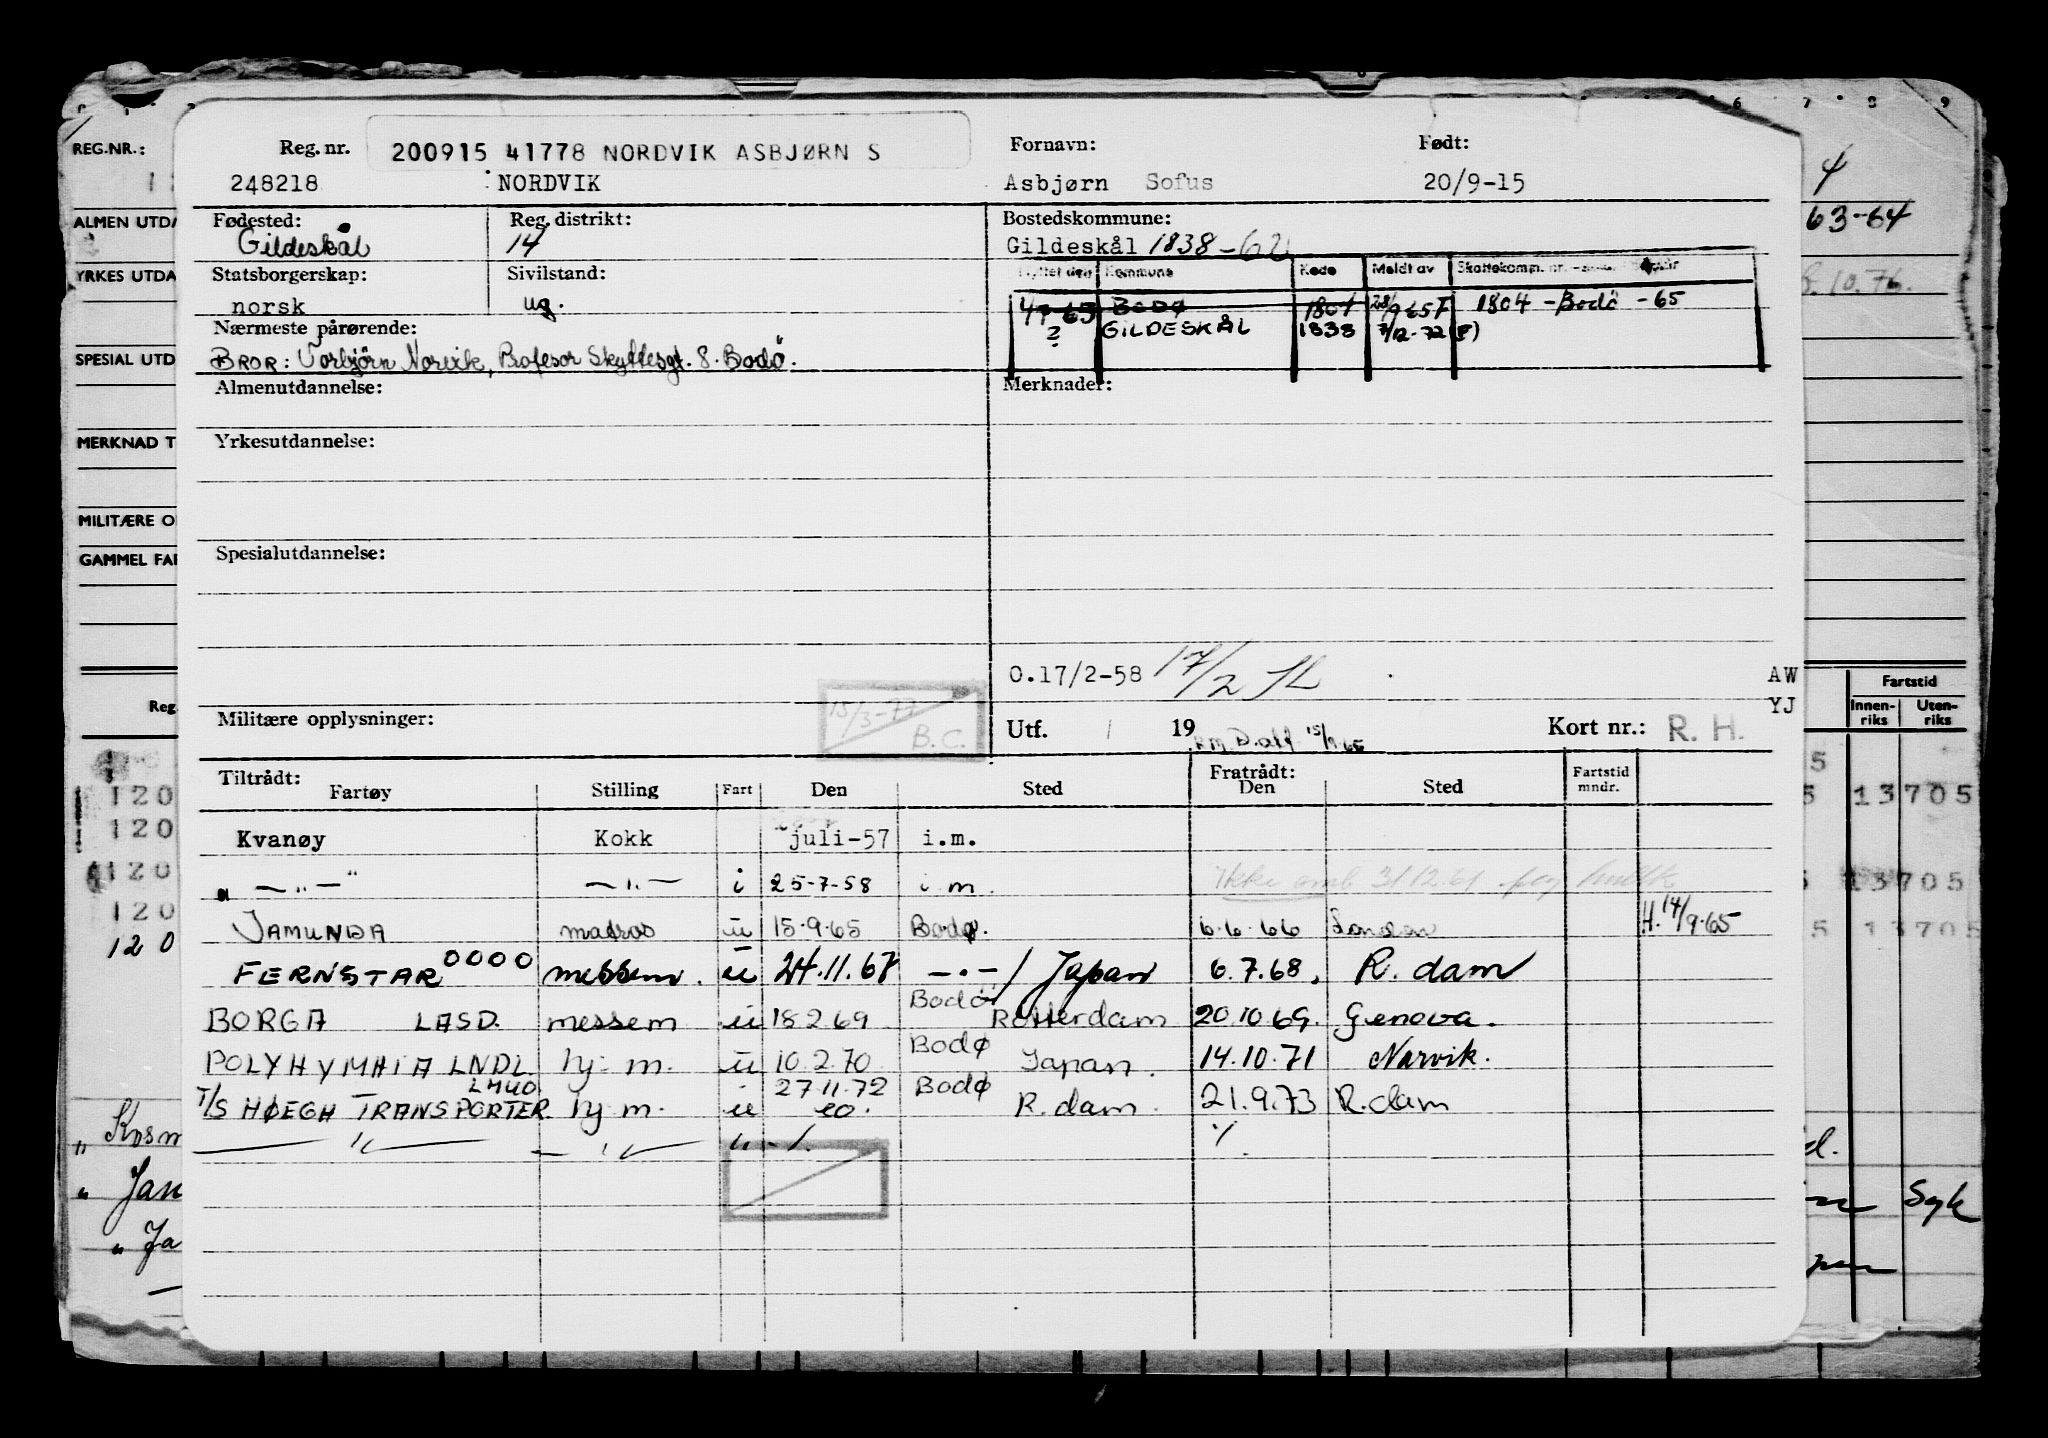 REG.NR.:
ALMEN UTDA
YRKES UTDA
SPESIAL UTD
MERKNAD T
MILITÆRE O
GAMMEL FAR
Reg.
120
120
120
120
120
" Kosm
" Jan
" Ja
Reg. nr. 200915 41778 NORDVIK ASBJØRN S Fornavn: Født:
248218 NORDVIK Asbjørn Sofus 20/9-15
Fødested: Reg. distrikt: Bostedskommune:
Gildeskål 14 Gildeskål 1838-62
Statsborgerskap: Sivilstand: Flyttet den Kommune Kode Meldt av Skattekomm. nr.
norsk ug. 4/7-65 BODØ 1804 28/9-65F 1804 - Bodö - 65
Nærmeste pårørende: ? GILDESKÅL 1838 7/12-72 (F)
BROR: Torbjörn Norvik, Profesor Skyttesgt. 8. Bodö.
Almenutdannelse: Merknader:
Yrkesutdannelse:
Spesialutdannelse:
O.17/2-58 17/2 AW
15/3-77 YJ
B.C.
Militære opplysninger: Utf. 19 Kort nr.: R. H.
15/9.65
Tiltrådt: Fratrådt:
Fartøy Stilling Fart Den Sted Den Sted Fartstid mndr.
Kvanøy Kokk juli-57 i.m.
" — " — " — " — i 25-7-58 i m. Ikke omb 31.12.61
JAMUNDA matros u 15-9-65 Bodø. 6.6.66 London H. 14/9-65
FERNSTAR 0000 messem. u 24.11.67 — " — / Japan 6.7.68. R. dam
BORGA LASD. messem u 18.2.69 Bodö Rotterdam 20.10.69. Genova.
POLYHYMNIA LNDL hj. m. u 10.2.70 Bodø Japan. 14.10.71 Narvik.
T/S HØEGH TRANSPORTER LHUO hj m. u 27.11.72 eo. Bodø R. dam. 21.9.73 R.dam
— " — — " — " - /. /.
6 7 8 9
4
63-64
8.10.76.
Fartstid
Innen-riks Uten-riks
13705
13705
13705
Syk